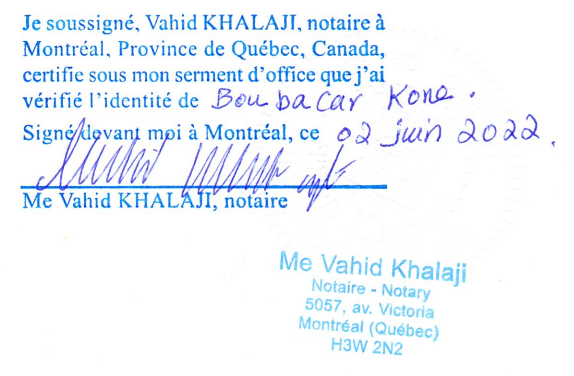 Je soussigné, Vahid KHALAJI, notaire à
Montréal, Province de Québec, Canada,
certifie sous mon serment d'office que j'ai
vérifié l'identité de Boubacar Kone.
Signé devant moi à Montréal, ce 02 juin 2022.
Me Vahid KHALAJI, notaire
Me Vahid Khalaji
Notaire - Notary
5057, av. Victoria
Montréal (Québec)
H3W 2N2